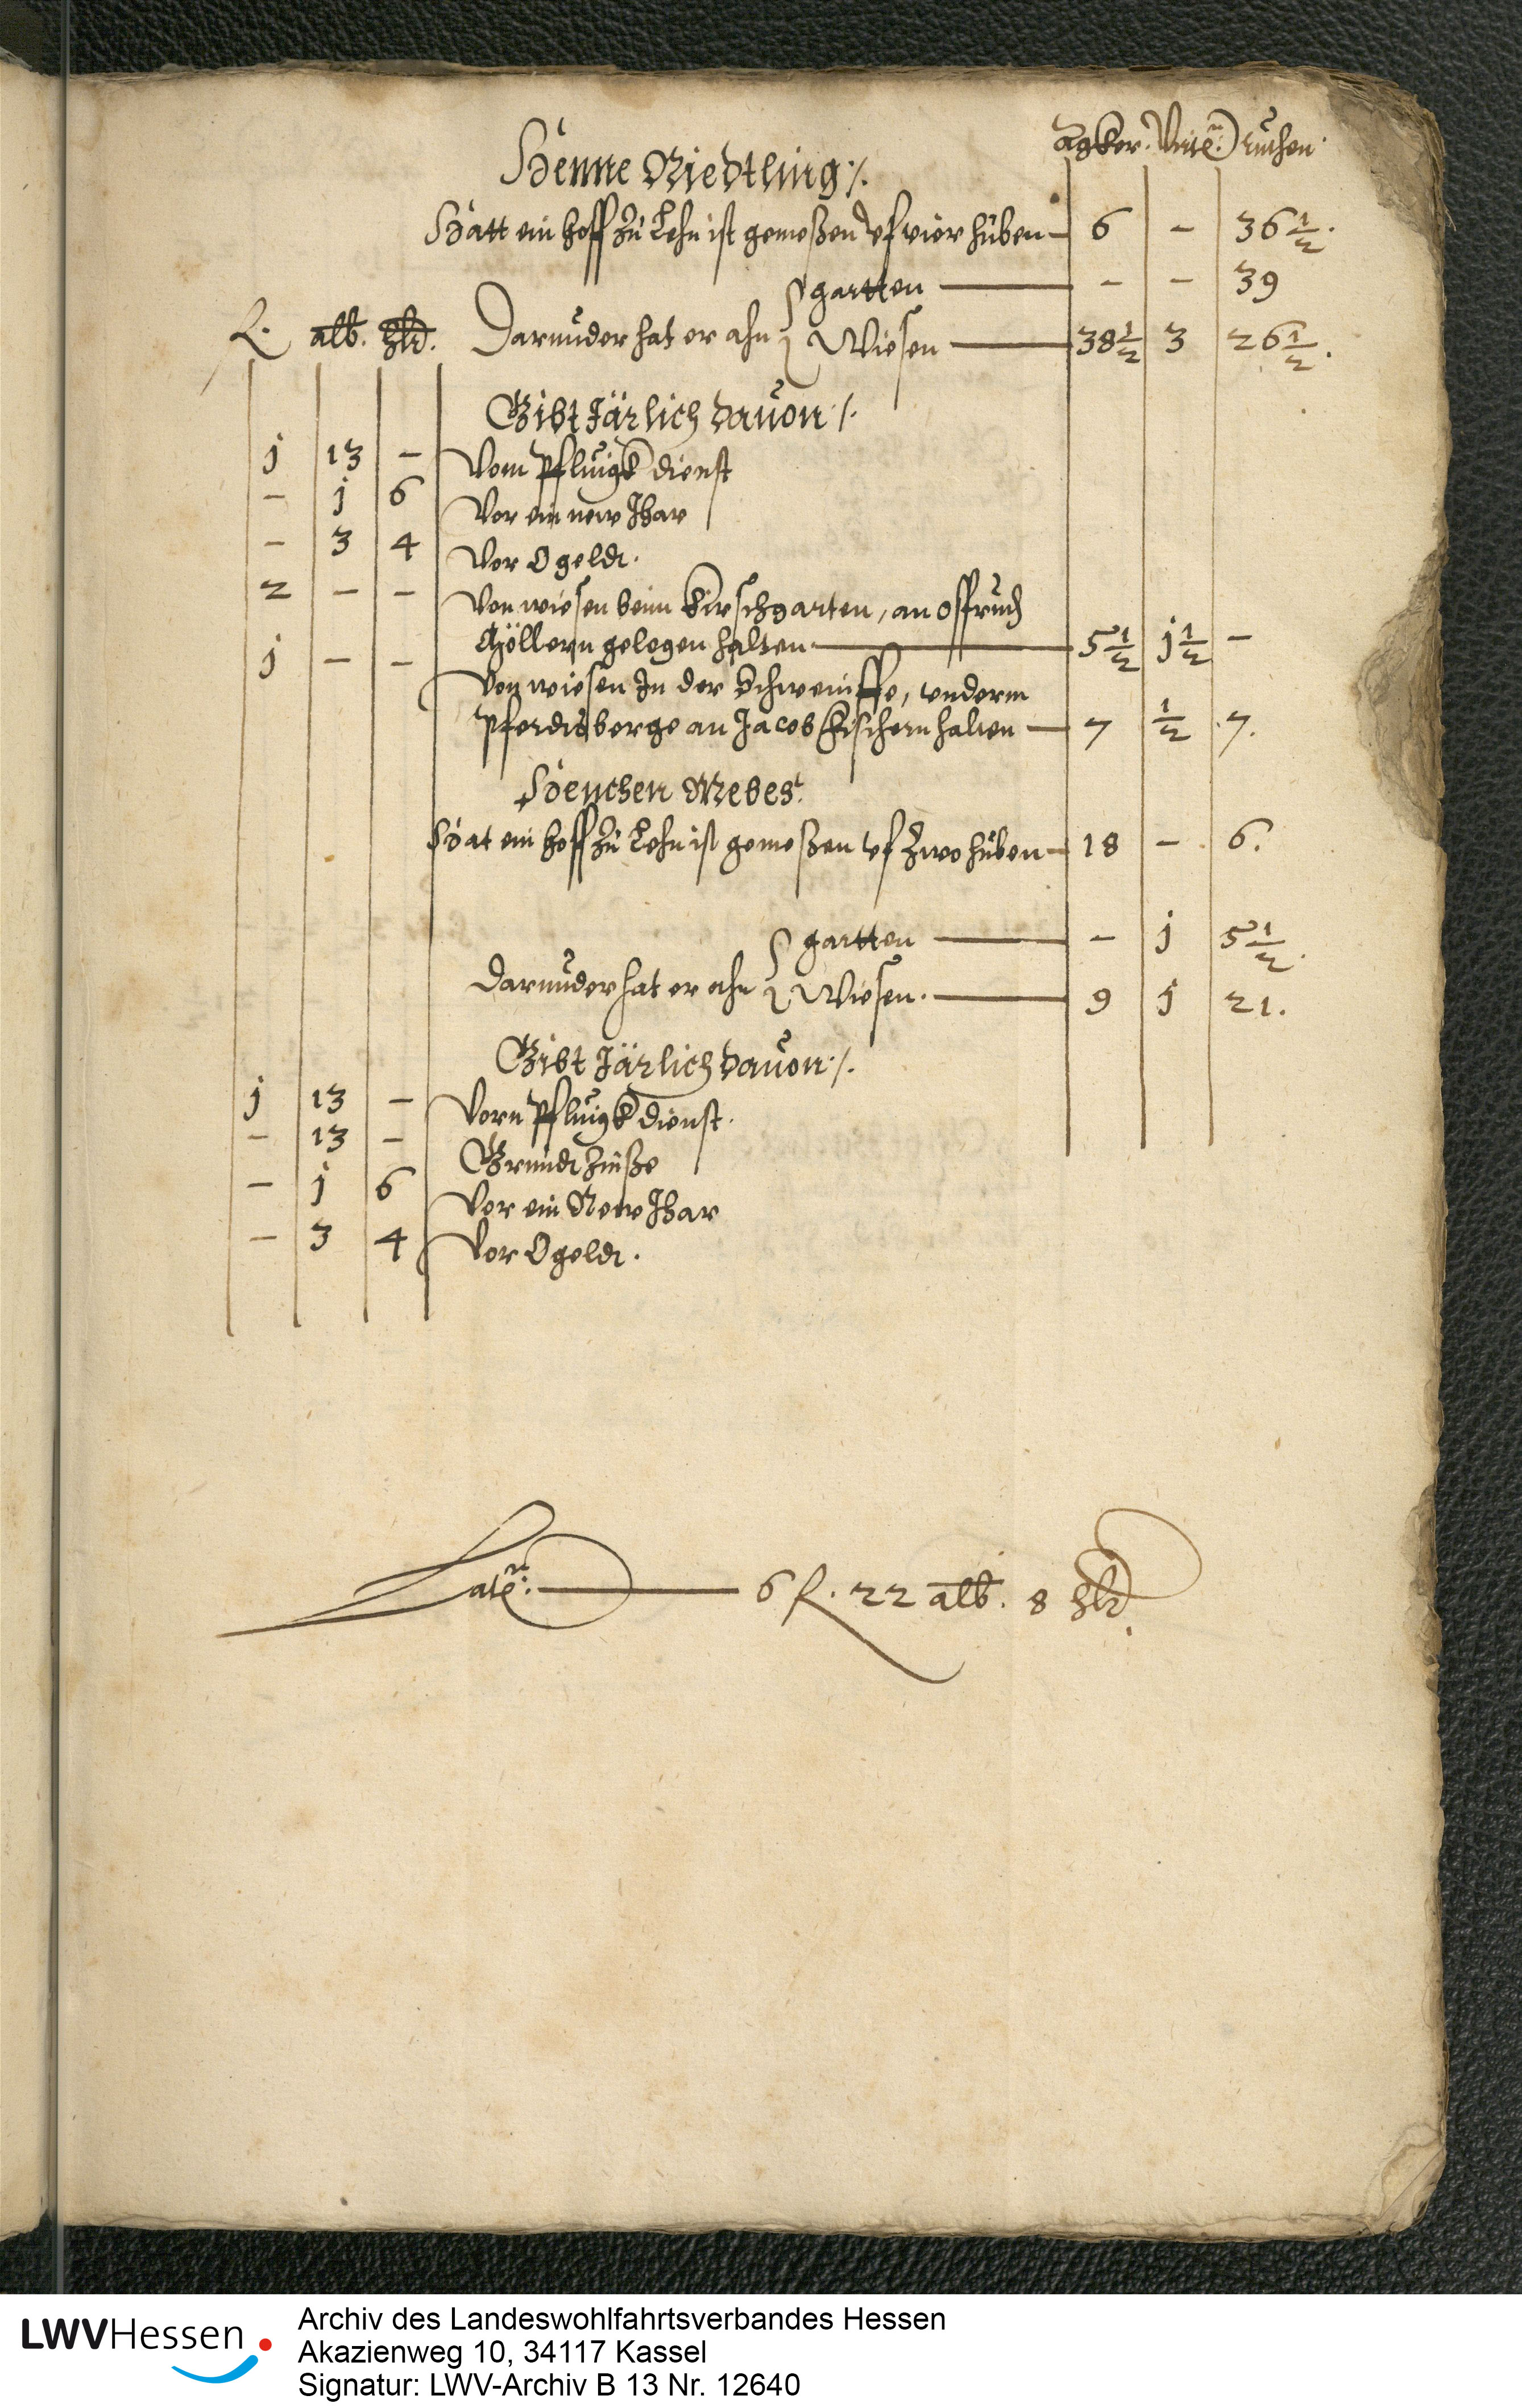 Agker. Virtel. ruthen.
Henne Riedtling ./.
Hatt ein hoff zu Lehn ist gemeßen vf vier huben — 6 – 36 1/2.
gartten — – – 39
fl. alb. hlr. Darunder hat er ahn Wiesen — 38 1/2 3 26 1/2.
Gibt Järlich dauon ./.
j 13 – Vom Pflugk dienst
– j 6 Vor ein new Jhar
– 3 4 Vor O geldt.
2 – – Von wiesen beim Kirschgarten, an
gelegen halten — 5 1/2 j 1/2 –
j – – Von wiesen In der Schweinffe, vnderm
Pferdtsberge an Jacob Fischern halten — 7 1/2 7.
Henchen Mebes.
Hat ein hoff zu Lehn ist gemeßen vf zwo huben — 18 – 6.
gartten — – j 5 1/2.
Darunder hat er ahn Wiesen. — 9 j 21.
Gibt Järlich dauon ./.
j 13 – Vorn Pflugk dienst.
– 13 – Grundt Zinße
– j 6 Vor ein New Jhar
– 3 4 Vor O geldt.
Later. — 6 fl. 22 alb. 8 hlr.
LWVHessen
Archiv des Landeswohlfahrtsverbandes Hessen
Akazienweg 10, 34117 Kassel
Signatur: LWV-Archiv B 13 Nr. 12640